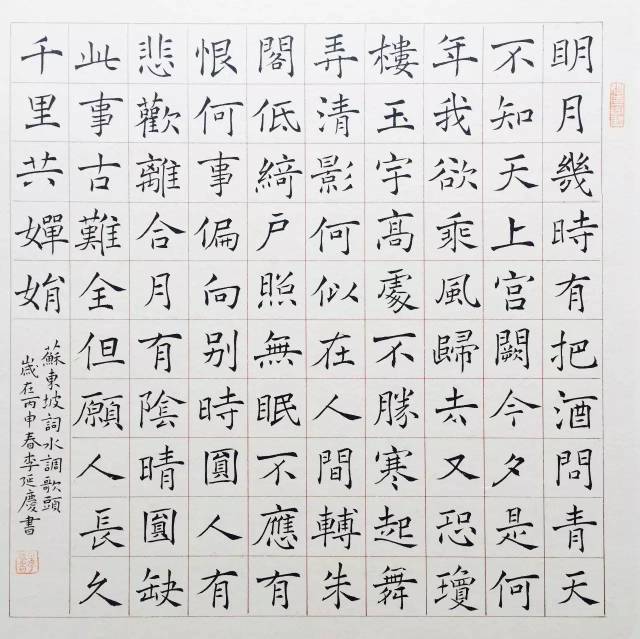 眀月幾時有把酒問青天
不知天上宫闕今夕是何
年我欲乘風歸去又恐瓊
樓玉宇高處不勝寒起舞
弄清影何似在人間轉朱
閣低綺戶照無眠不應有
恨何事偏向别時圓人有
悲歡離合月有陰晴圓缺
此事古難全但願人長久
千里共嬋娟
蘇東坡詞水調歌頭
歲在丙申春李延慶書